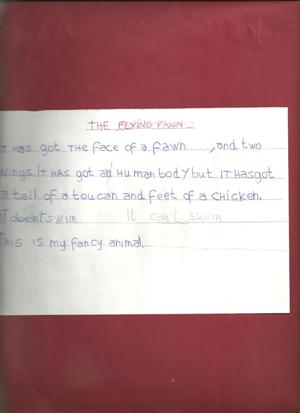 THE FLYING FAWN
IT HAS GOT THE face of a fawn ....., and two
wings. IT HAS got an HUman body but IT HASgot
a tail of a toucan and feet of a CHICKEN.
IT doesn't swim. It can't swim
THIS IS my fancy animal.